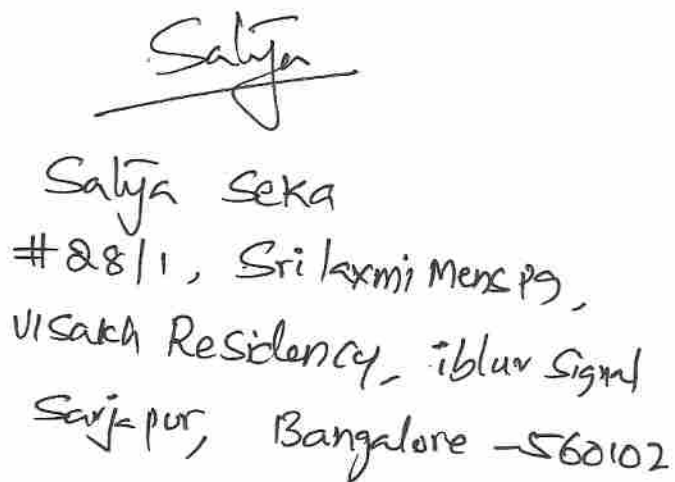 Satya
Satya Seka
#28/1, Sri laxmi Mens pg,
Visakh Residency, iblur Signal
Sarjapur, Bangalore - 560102